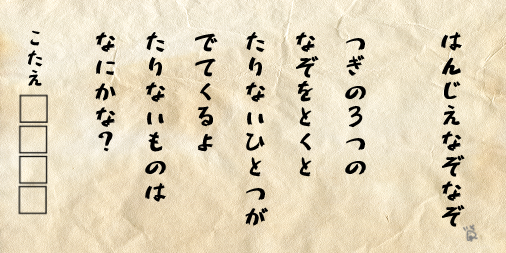 はんじえなぞなぞ
つぎの3つの
なぞをとくと
たりないひとつが
でてくるよ
たりないものは
なにかな？
こたえ